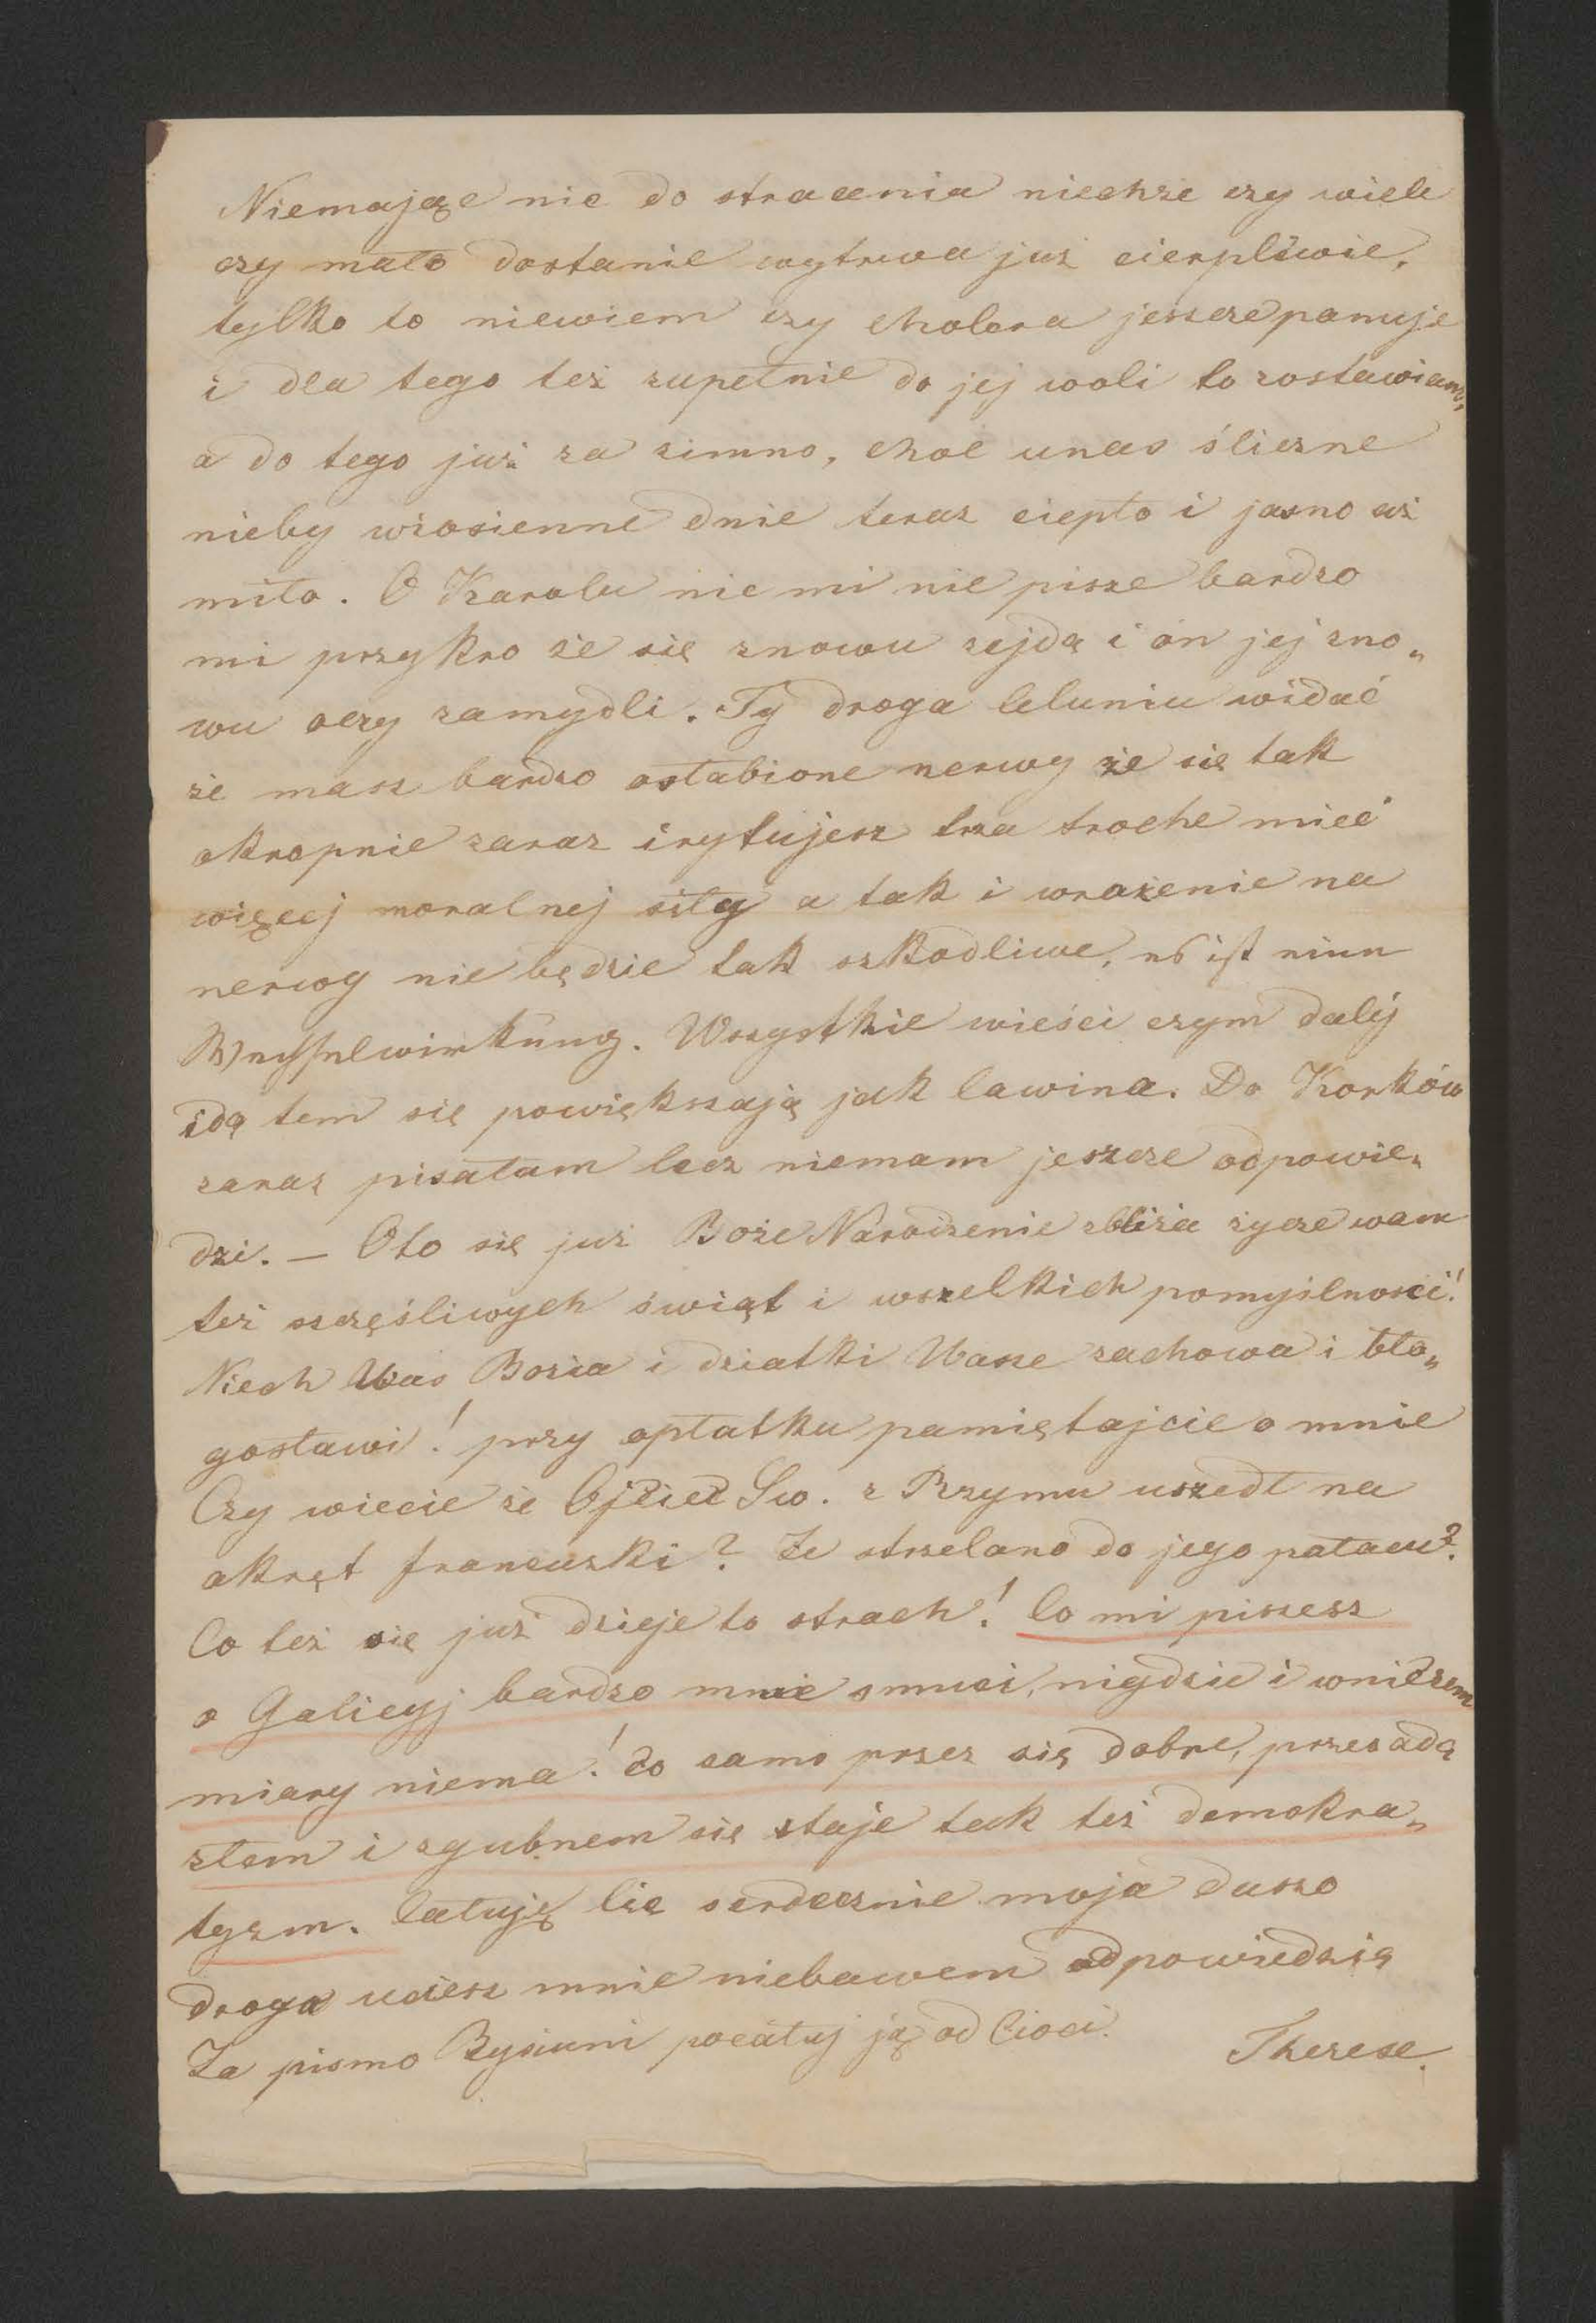 Niemając nic do stracenia niechże czy wiele
czy mało dostanie wytrwa już cierpliwie,
tylko to niewiem czy cholera jeszcze panuje
i dla tego też zupełnie do jej woli to zostawiam,
a do tego już za zimno, choć unas śliczne
nieby wiosienne dnie teraz ciepło i jasno aż
miło. O Karolu nic mi nie pisze bardzo
mi przykro że się znowu zejdą i ón jej zno„
wu oczy zamydli. Ty droga Celuniu widać
że masz bardzo osłabione nerwy że się tak
okropnie zaraz irytujesz trza troche mieć
więcej moralnej siły a tak i wrażenie na
nerwy nie będzie tak szkodliwe, es ist eine
Wechselwirkung. Wszystkie wieści czym daléj
idą tem się powiększają jak lawina. Do Korków
zaraz pisałam lecz niemam jeszcze odpowie„
dzi. — Oto się już Boże Narodzenie zbliża życze wam
też szczęśliwych świąt i wszelkich pomyślnosci!
Niech Was Bozia i dziatki Wasze zachowa i bło„
gosławi! przy opłatku pamiętajcie o mnie
Czy wiecie że Ojciec Św. z Rzymu uszedł na
okręt francuski? Że strzelano do jego pałacu?
Co też się już dzieje to strach! Co mi piszesz
o Galicyj bardzo mnie smuci, nigdzie i wniczem
miary niema! co samo przez się dobre, przesadą
złem i zgubnem się staje tak też demokra„
tyzm. Całuję Cię serdecznie moja duszo
droga uciesz mnie niebawem odpowiedzią
Za pismo pocałuj ją od Cioci.
Therese.